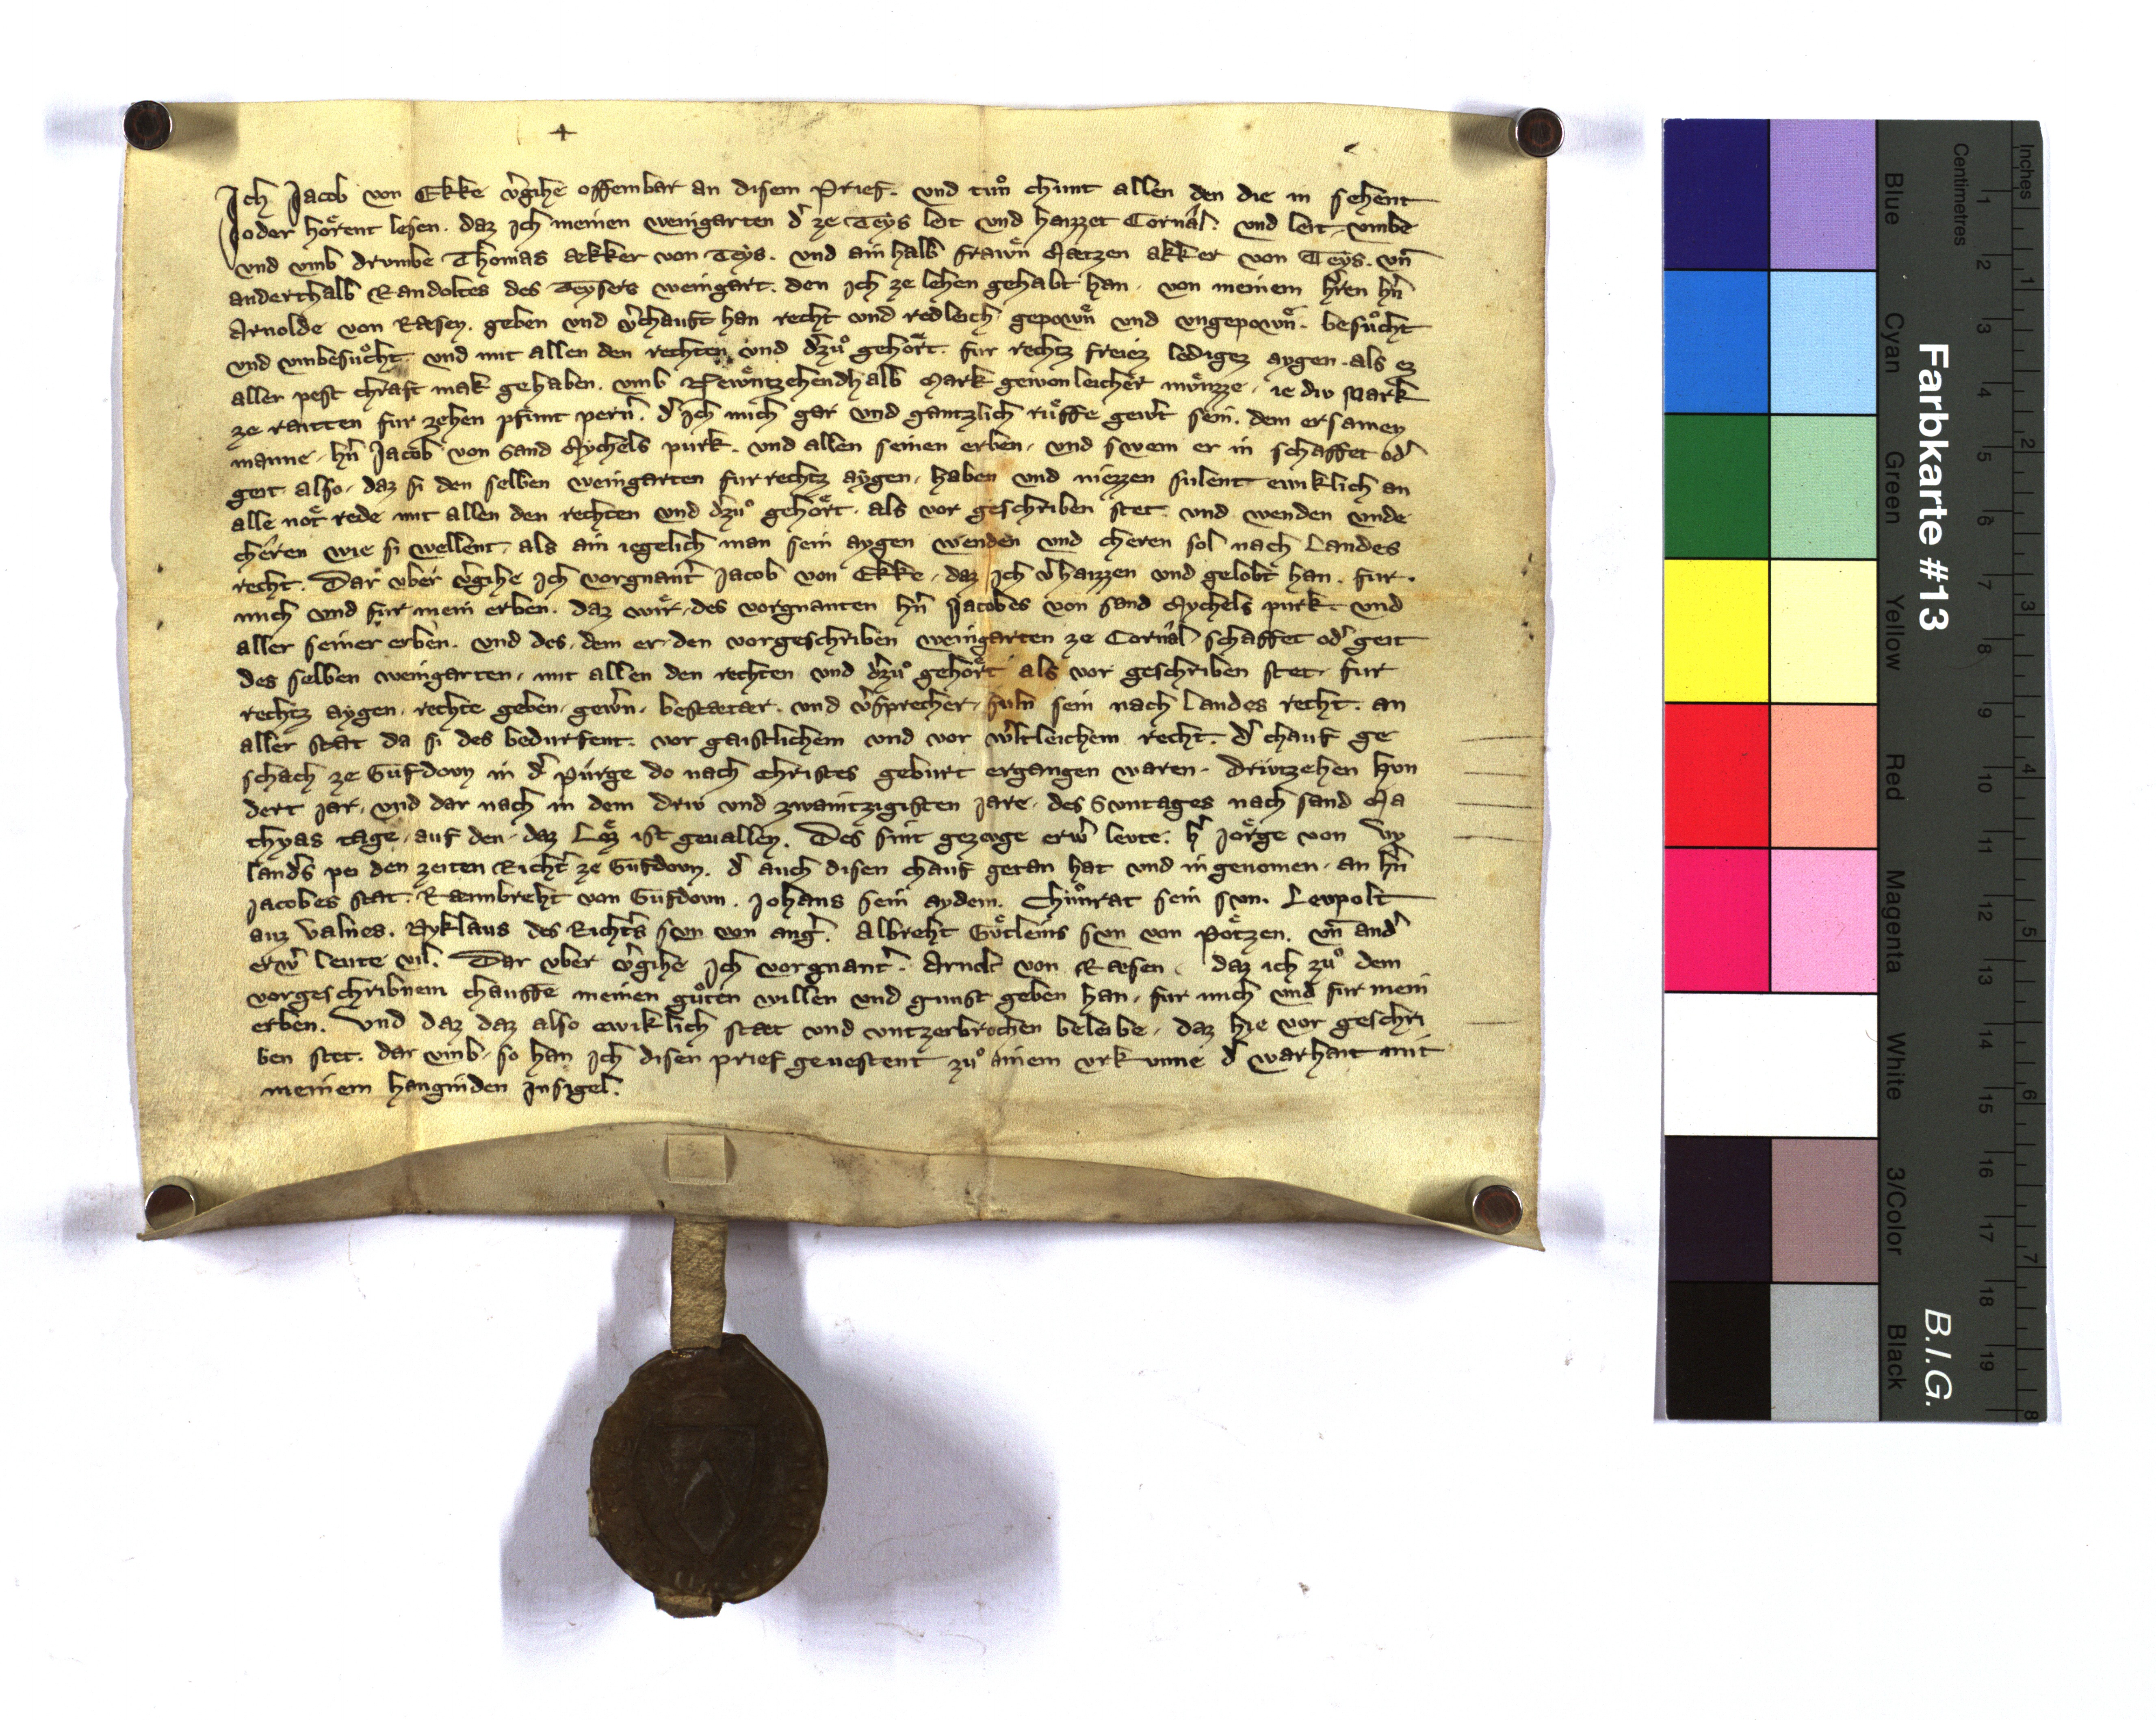 Ich Jacob von Ekke v͛gihe offembar an disem Prief. vnd tuͦn chunt allen den die in sehent
oder hoͤrent lesen. daz Ich meinen weingarten d͛ ze Teys leit vnd haizzet Cornâl. vnd leit vmbe
vnd vmb drumbe Thomas ækker von Teys. vnd ain halb frawn Mætzen akker von Teys. vn̄
anderthalb Randoltes des Teysers weingart. den Ich ze lehen gehabt han. von meinem h͛ren hn̄
Arnolde von Ræsen. geben vnd v͛chauft han recht vnd redleich gepown vnd vngepown. besuͦcht
vnd vmbesuͦcht. vnd mit allen den rechten vnd d͛zuͦ gehoͤrt. fur rechtz freiez ledigez aygen. als ez
aller pest chraft mak gehaben. vmb Newntzehendhalb Mark gewonleicher muͤnzze. ie div Mark
ze raitten fur zehen pfunt pern͛. d͛ Ich mich gar vnd gantzlich ruͤffe gew͛t sein. dem ersamen
manne. hn̄ Jacob von Sand Mychels purk. vnd allen seinen erben. vnd swem er in schaffet od͛
geit also. daz si den selben weingarten fur rechtz aygen. haben vnd niezzen sulent ewiklich an
alle not rede mit allen den rechten vnd d͛zuͦ gehoͤrt. als vor geschriben stet. vnd wenden vnde
chêren wie si wellent. als ain iegelich man sein aygen wenden vnd cheren sol nach Landes
recht. Dar vber v͛gihe Ich vorgnant͛ Jacob von Ekke. daz Ich v͛haizzen vnd gelobt han. fur.
mich vnd fur mein erben. daz wir. des vorgnanten hn̄ Jacobes von sand Mychels purk vnd
aller seiner erben. vnd des. dem er. den vorgeschriben weingarten ze Cornâl schaffet od͛ geit
des selben weingarten. mit allen den rechten vnd d͛zuͦ gehoͤrt als vor geschriben stet. fur
rechtz aygen. rechte geben. gew͛n. bestætær. vnd v͛sprecher. suln sein nach Landes recht. an
aller stat da si des bedurfent. vor gaistlichem vnd vor w͛ltleichem recht. d͛ chauf ge
schach ze Gufdovn in d͛ purge do nach Christes geburt ergangen waren. drivtzehen hvn
dert jar. vnd dar nach in dem driv vnd zwaintzigisten jare. des Svntages nach sand Ma
thyas tage. auf den. daz Loͤz ist geuallen. Des sint gezevge erw͛ levte. h͛ Joͤrge von Vy
land͛s pei den zeiten Richt͛ ze Gufdovn. d͛ auch disen chauf getan hat vnd in genomen. an hn̄
Jacobes stat. Ræmbreht von Gufdovn. Johans sein aydem. Chuͦnrat sein svn. Levpolt
auz Valnes. Nyklaus des Richt͛s svn von ang͛. Albreht Goͤtleins svn von Potzen. vn̄ and͛
erw͛ levte vil. Dar vber v͛gihe Ich vorgnant͛. Arnolt von Ræsen. daz ich zuͦ dem
vorgeschribnem chauffe meinen guͦten willen vnd gunst geben han. fur mich vnd fur mein
erben. Vnd daz daz also ewiklich stæt vnd vntzerbrochen beleibe. daz hie vor geschri
ben stet. dar vmb. so han Ich disen prief geuestent zuͦ ainem vrkunne d͛ warhait mit
meinem hanginden Insigel.
Farbkarte #13
B.I.G.
Blue Cyan Green Yellow Red Magenta White 3/Color Black
Centimetres 1 2 3 4 5 6 7 8 9 10 11 12 13 14 15 16 17 18 19
Inches 1 2 3 4 5 6 7 8